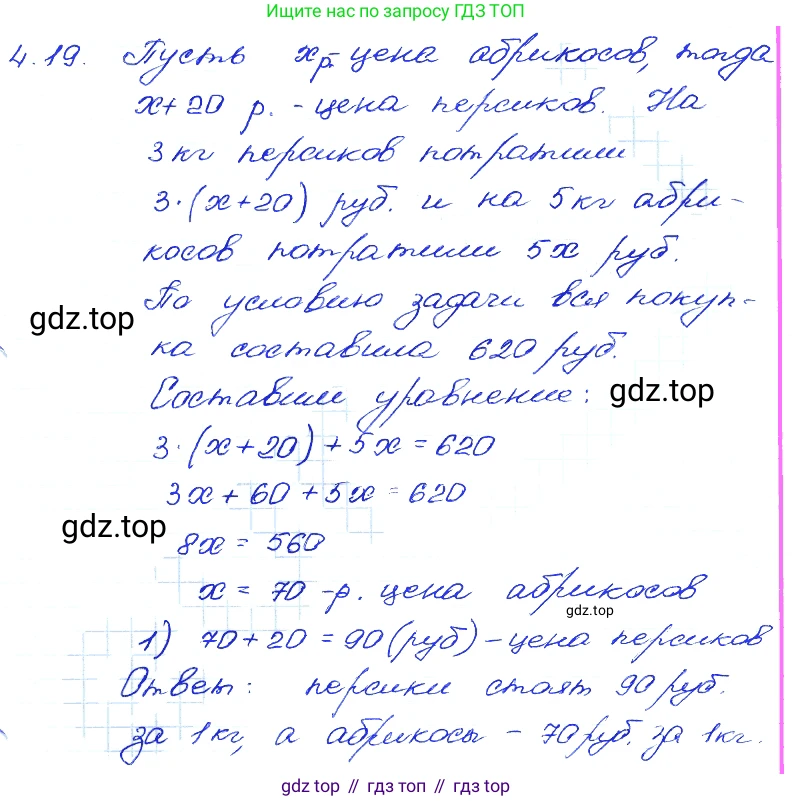 Ищите нас по запросу ГДЗ ТОП
4.19. Пусть x р.- цена абрикосов, тогда
x+20 р. - цена персиков. На
3 кг персиков потратили
3·(x+20) руб. и на 5 кг абри-
косов потратили 5x руб.
По условию задачи вся покуп-
gdz.top
ка составила 620 руб.
Составим уравнение:
gdz.top
3·(x+20)+5x=620
3x+60+5x=620
gdz.top
8x=560
x=70 -р. цена абрикосов
gdz.top
1) 70+20=90(руб)-цена персиков
Ответ: персики стоят 90 руб.
за 1 кг, а абрикосы - 70 руб. за 1 кг.
gdz top // гдз топ // gdz top